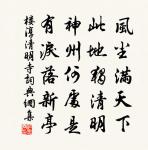 風塵滿天下
此地獨清明
神州何處是
有淚落新亭
楼淳清明寺詞典網集